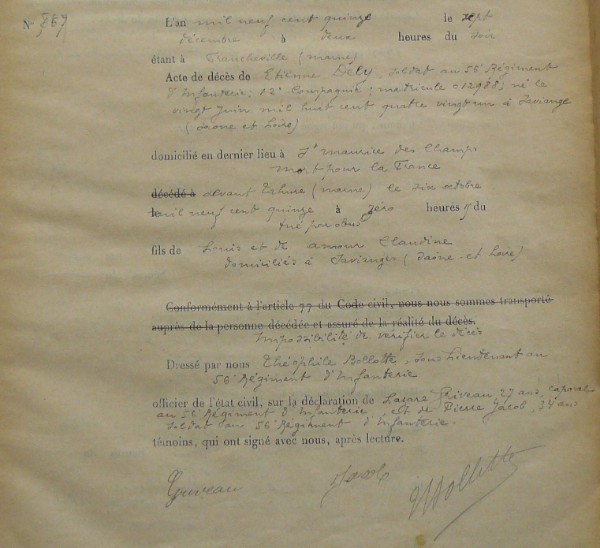 N° 567 L'an mil neuf cent quinze le sept
décembre à deux heures du soir
étant à Francheville (marne)
Acte de décès de Etienne Dely, soldat au 56e Régiment
d'Infanterie; 12e Compagnie; matricule 012988; né le
vingt Juin mil huit cent quatre vingt à
(Saone et Loire)
domicilié en dernier lieu à St maurice des Champs
mort pour la France
décédé à devant (marne) le six octobre
le mil neuf cent quinze à zéro heures 5 du
tué par obus
fils de Louis et de amour Claudine
domiciliés à (Saône-et-Loire)
Conformément à l'article 77 du Code civil, nous nous sommes transporté
auprès de la personne décédée et assuré de la réalité du décès.
Impossibilité de vérifier le décès
Dressé par nous Théophile Bollotte, sous Lieutenant au
56e Régiment d'Infanterie
officier de l'état civil, sur la déclaration de Lazare 27 ans, caporal
au 56e Régiment d'Infanterie, et de Pierre Jacob, 24 ans
soldat au 56e Régiment d'Infanterie.
témoins, qui ont signé avec nous, après lecture.
Jacob